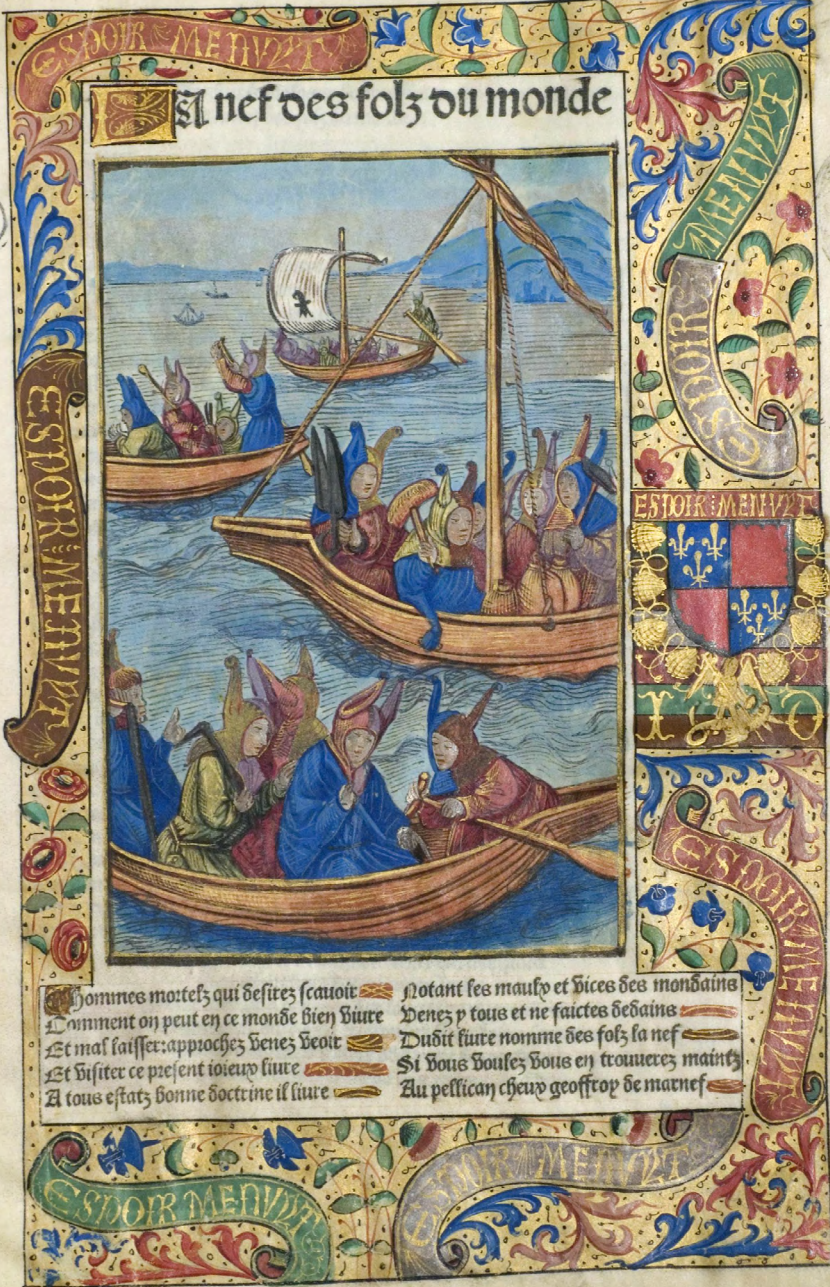 ESPOIR MENVYT
La nef des folz du monde
MENVYT
ESPOIR
ESPOIR MENVYT
ESPOIR MENVYT
I O
ESPOIR MENVYT
O hommes mortelz qui desirez scavoir
Comment on peut en ce monde bien vivre
Et mal laisser: approchez venez veoir
Et visiter ce present ioieux livre
A tous estatz bonne doctrine il livre
Notant les maulx et vices des mondains
Venez y tous et ne faictes dedains
Dudit livre nomme des folz la nef
Si vous voulez vous en trouverez maintz
Au pellican cheux geoffroy de marnef
ESPOIR MENVYT
ESPOIR MENVYT